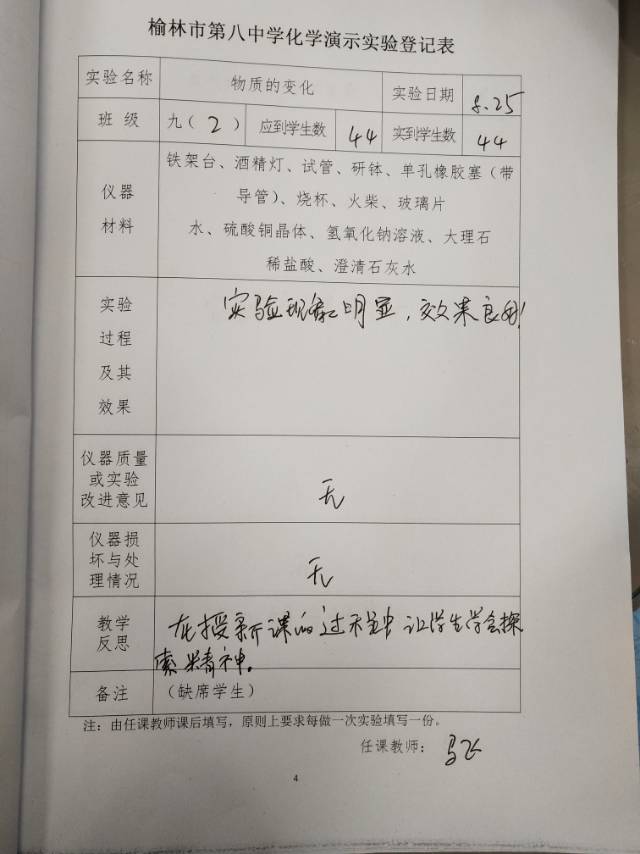 榆林市第八中学化学演示实验登记表
实验名称 物质的变化 实验日期 8.25
班级 九(2) 应到学生数 44 实到学生数 44
仪器
材料
铁架台、酒精灯、试管、研钵、单孔橡胶塞(带
导管)、烧杯、火柴、玻璃片
水、硫酸铜晶体、氢氧化钠溶液、大理石
稀盐酸、澄清石灰水
实验
过程
及其
效果
实验现象明显,效果良好!
仪器质量
或实验
改进意见
无
仪器损
坏与处
理情况
无
教学
反思
在授新课的过程中让学生学会探
索精神。
备注 (缺席学生)
注:由任课教师课后填写,原则上要求每做一次实验填写一份。
任课教师:
4